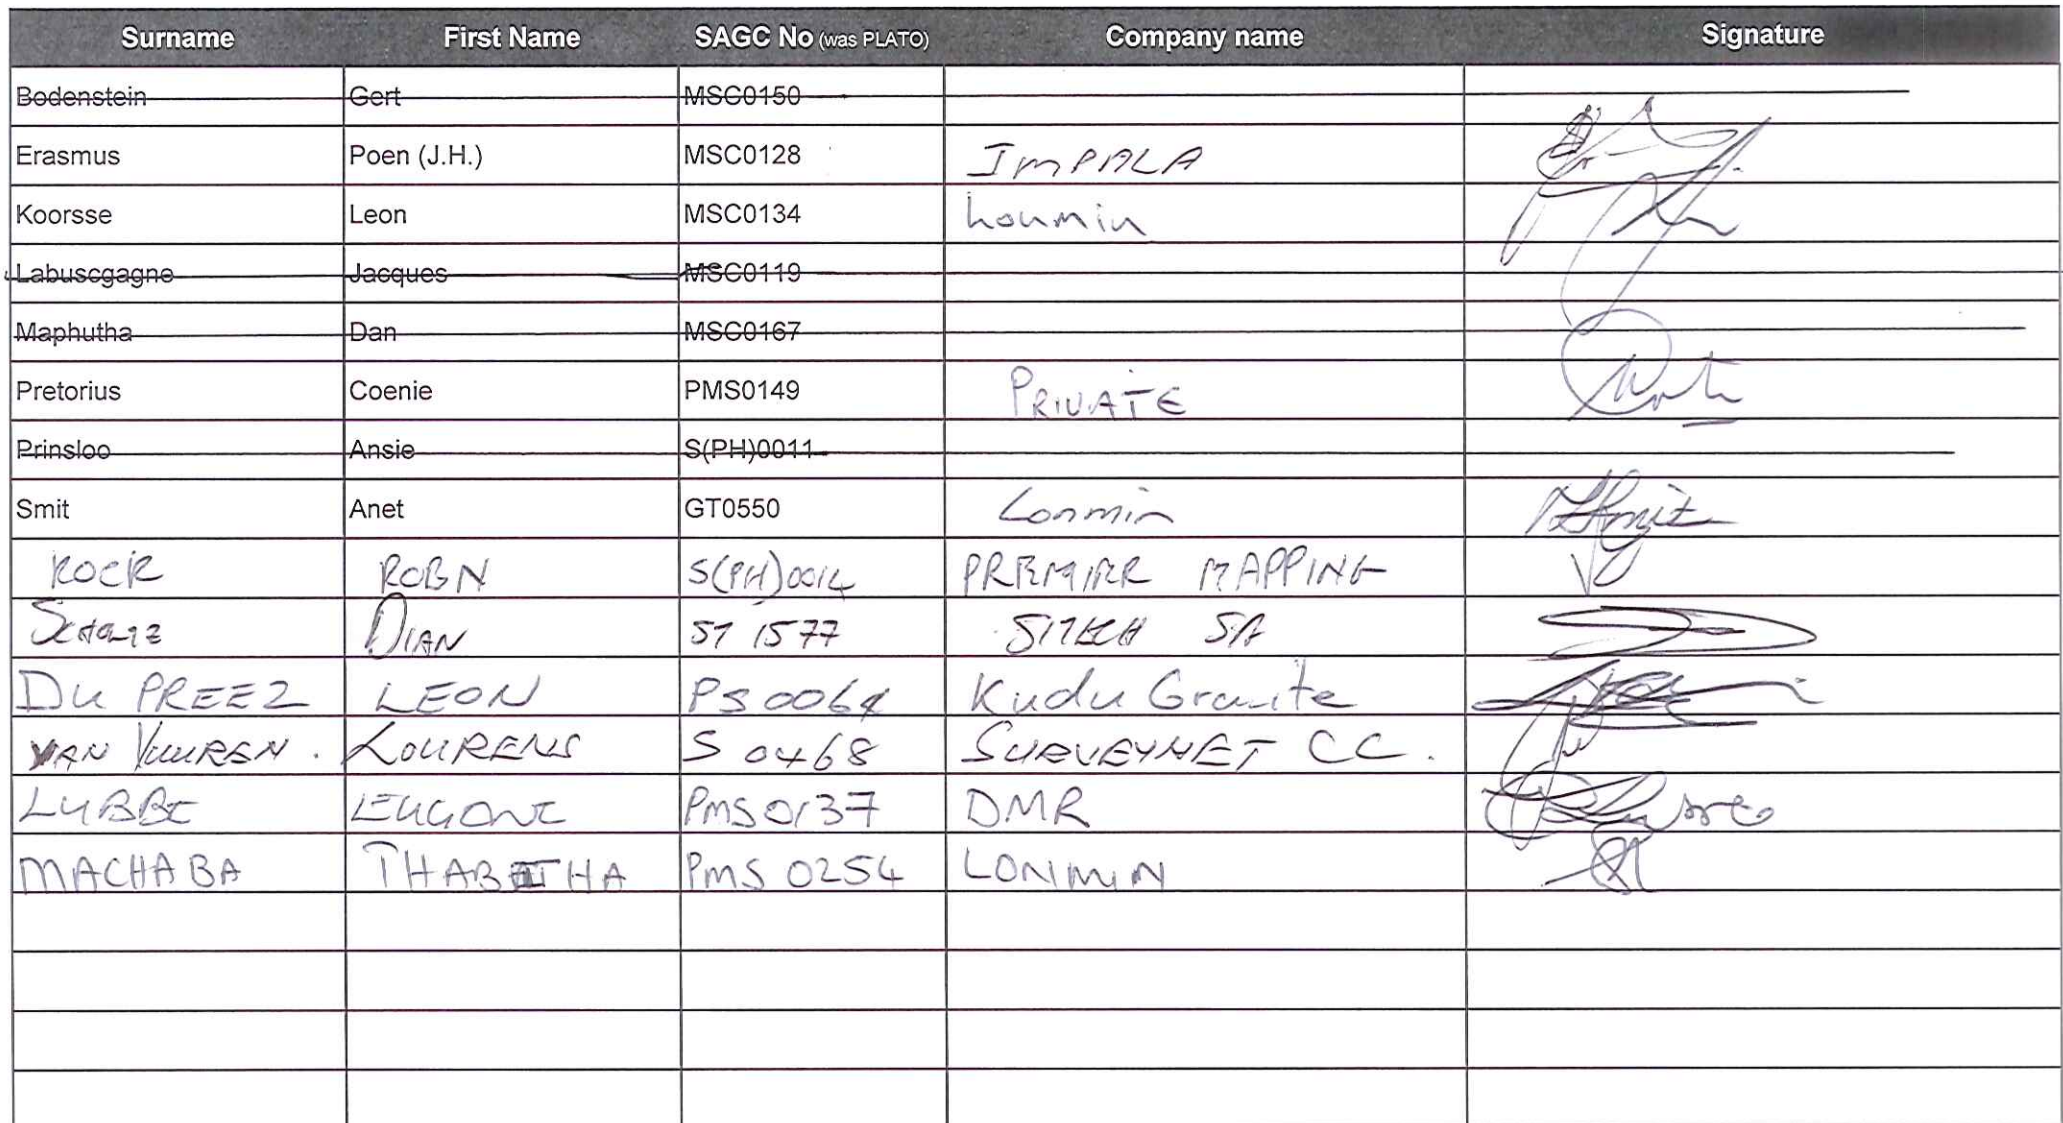 Surname First Name SAGC No (was PLATO) Company name Signature
Bodenstein Gert MSC0150
Erasmus Poen (J.H.) MSC0128 IMPALA
Koorsse Leon MSC0134 Lonmin
Labuscgagne Jacques MSC0119
Maphutha Dan MSC0167
Pretorius Coenie PMS0149 PRIVATE
Prinsloo Ansie S(PH)0011
Smit Anet GT0550 Lonmin
ROBN S(PH)0014 PREMIER MAPPING
DIAN ST 1577 SITECH SA
DU PREEZ LEON PS 0064 Kudu Granite
VAN VUUREN. LOURENS S 0468 SURVEYNET CC.
LUBBE EUGENE PMS 0137 DMR
MACHABA THABITHA PMS 0254 LONMIN